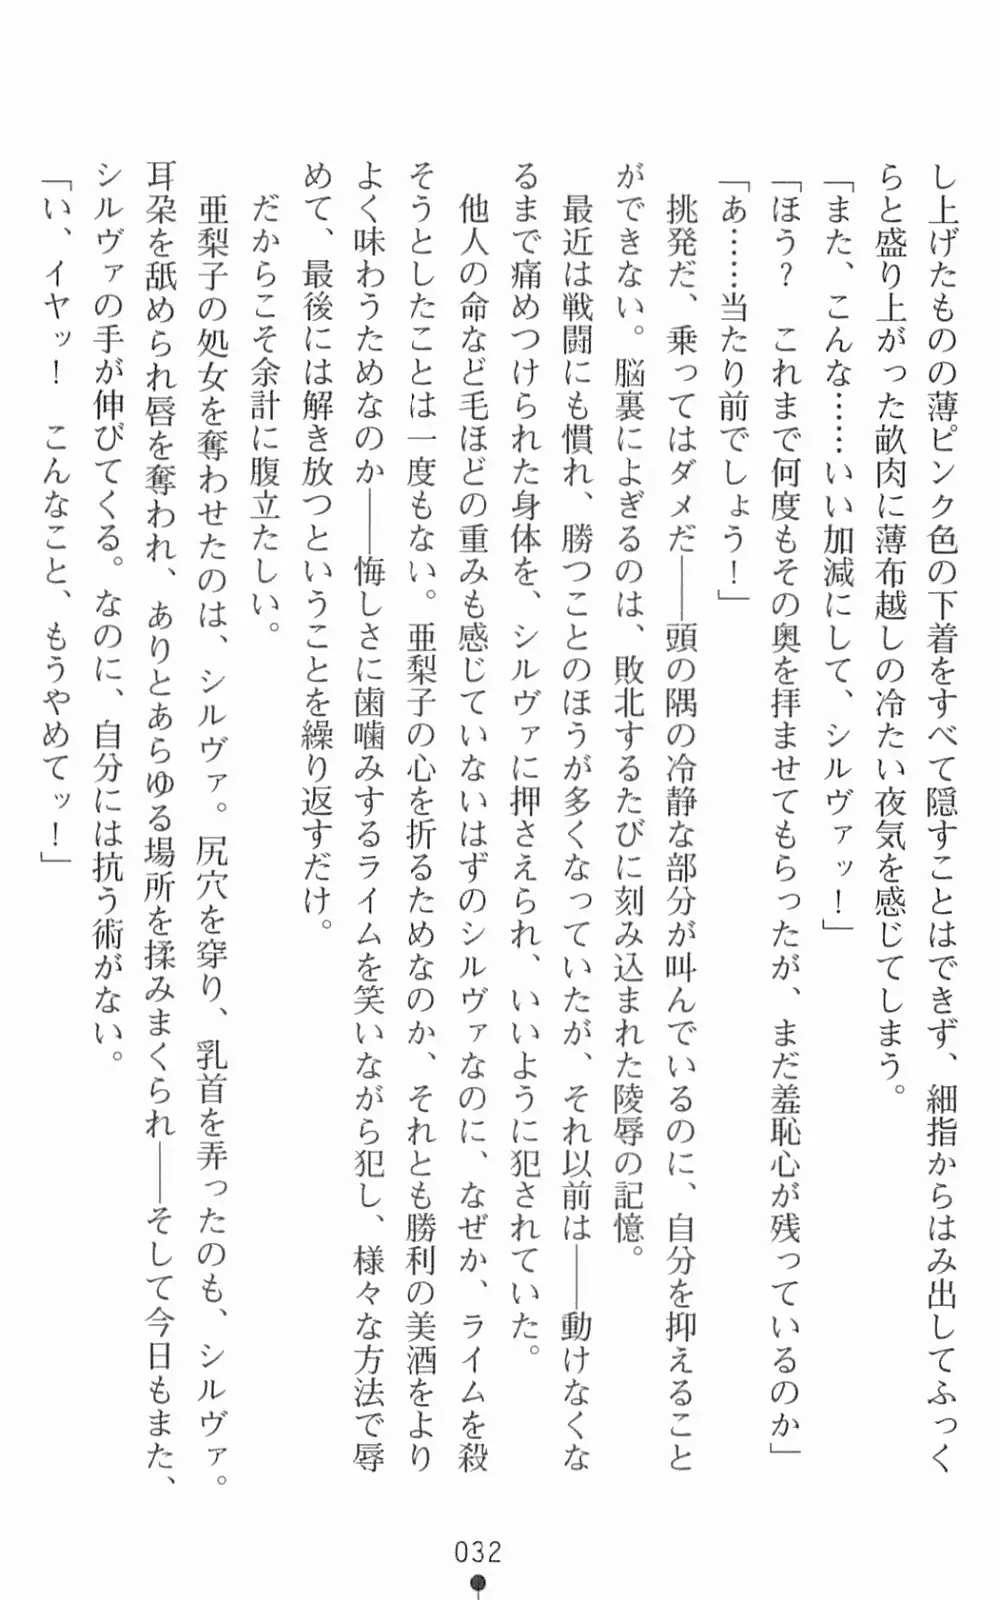 し上げたものの薄ピンク色の下着をすべて隠すことはできず、細指からはみ出してふっく
らと盛り上がった畝肉に薄布越しの冷たい夜気を感じてしまう。
「また、こんな……いい加減にして、シルヴァッ！」
「ほう？　これまで何度もその奥を拝ませてもらったが、まだ羞恥心が残っているのか」
「あ……当たり前でしょう！」
挑発だ、乗ってはダメだ――頭の隅の冷静な部分が叫んでいるのに、自分を抑えること
ができない。脳裏によぎるのは、敗北するたびに刻み込まれた陵辱の記憶。
最近は戦闘にも慣れ、勝つことのほうが多くなっていたが、それ以前は――動けなくな
るまで痛めつけられた身体を、シルヴァに押さえられ、いいように犯されていた。
他人の命など毛ほどの重みも感じていないはずのシルヴァなのに、なぜか、ライムを殺
そうとしたことは一度もない。亜梨子の心を折るためなのか、それとも勝利の美酒をより
よく味わうためなのか――悔しさに歯噛みするライムを笑いながら犯し、様々な方法で辱
めて、最後には解き放つということを繰り返すだけ。
だからこそ余計に腹立たしい。
亜梨子の処女を奪わせたのは、シルヴァ。尻穴を穿り、乳首を弄ったのも、シルヴァ。
耳朶を舐められ唇を奪われ、ありとあらゆる場所を揉みまくられ――そして今日もまた、
シルヴァの手が伸びてくる。なのに、自分には抗う術がない。
「い、イヤッ！　こんなこと、もうやめてッ！」
032